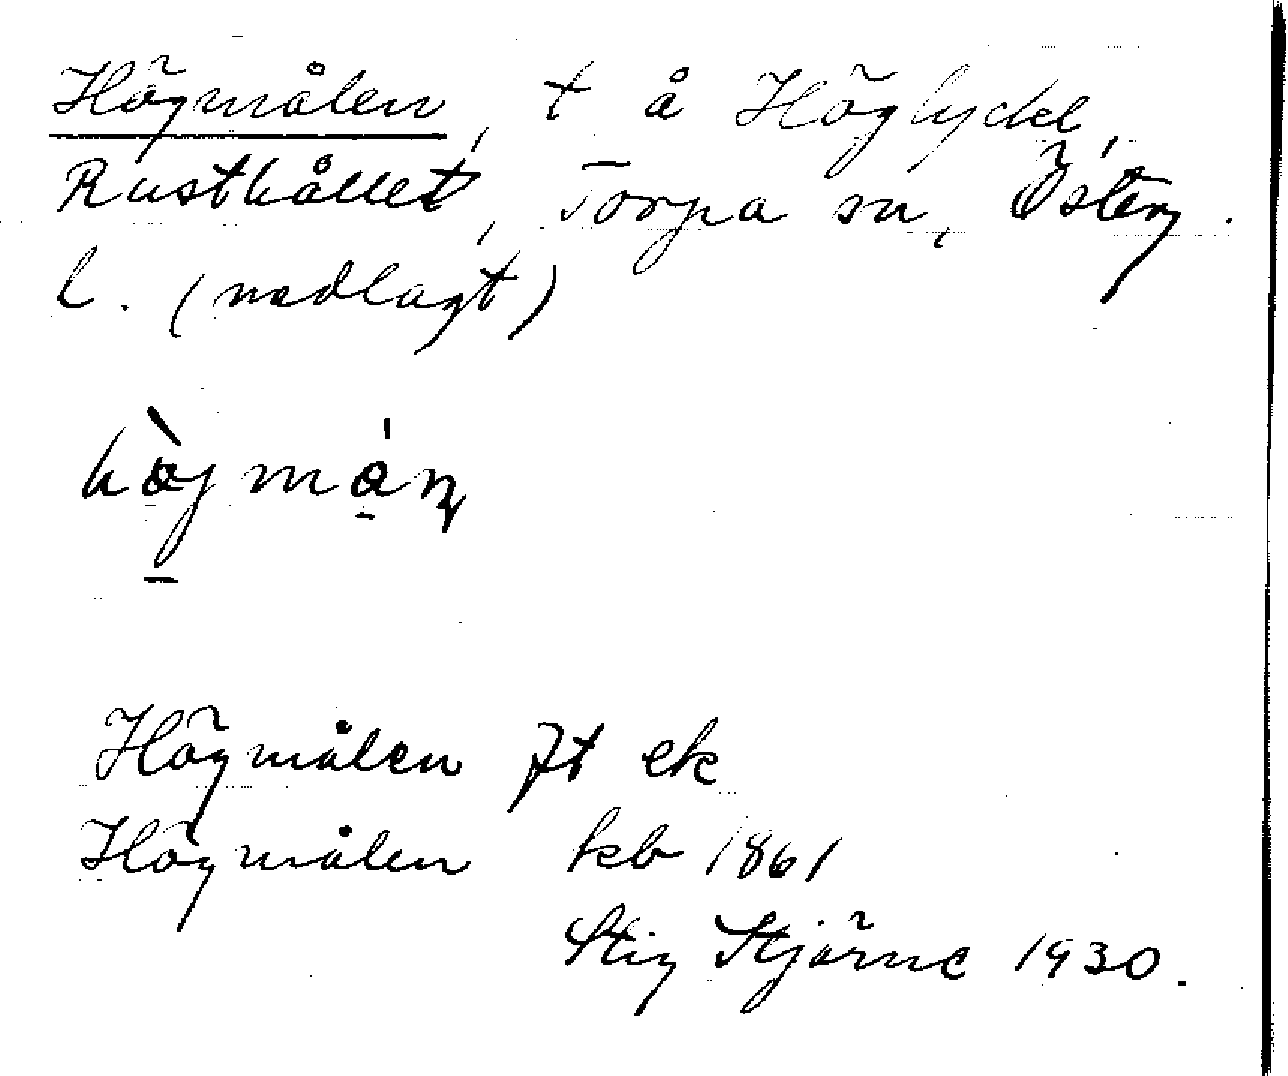 Högmålen, t å Höglyckel,
Rusthållet, Torpa sn, Österg.
l. (nedlagt)
hòjmán
Högmålen Jt ek
Högmålen kb 1861
Stig Stjärne 1930.